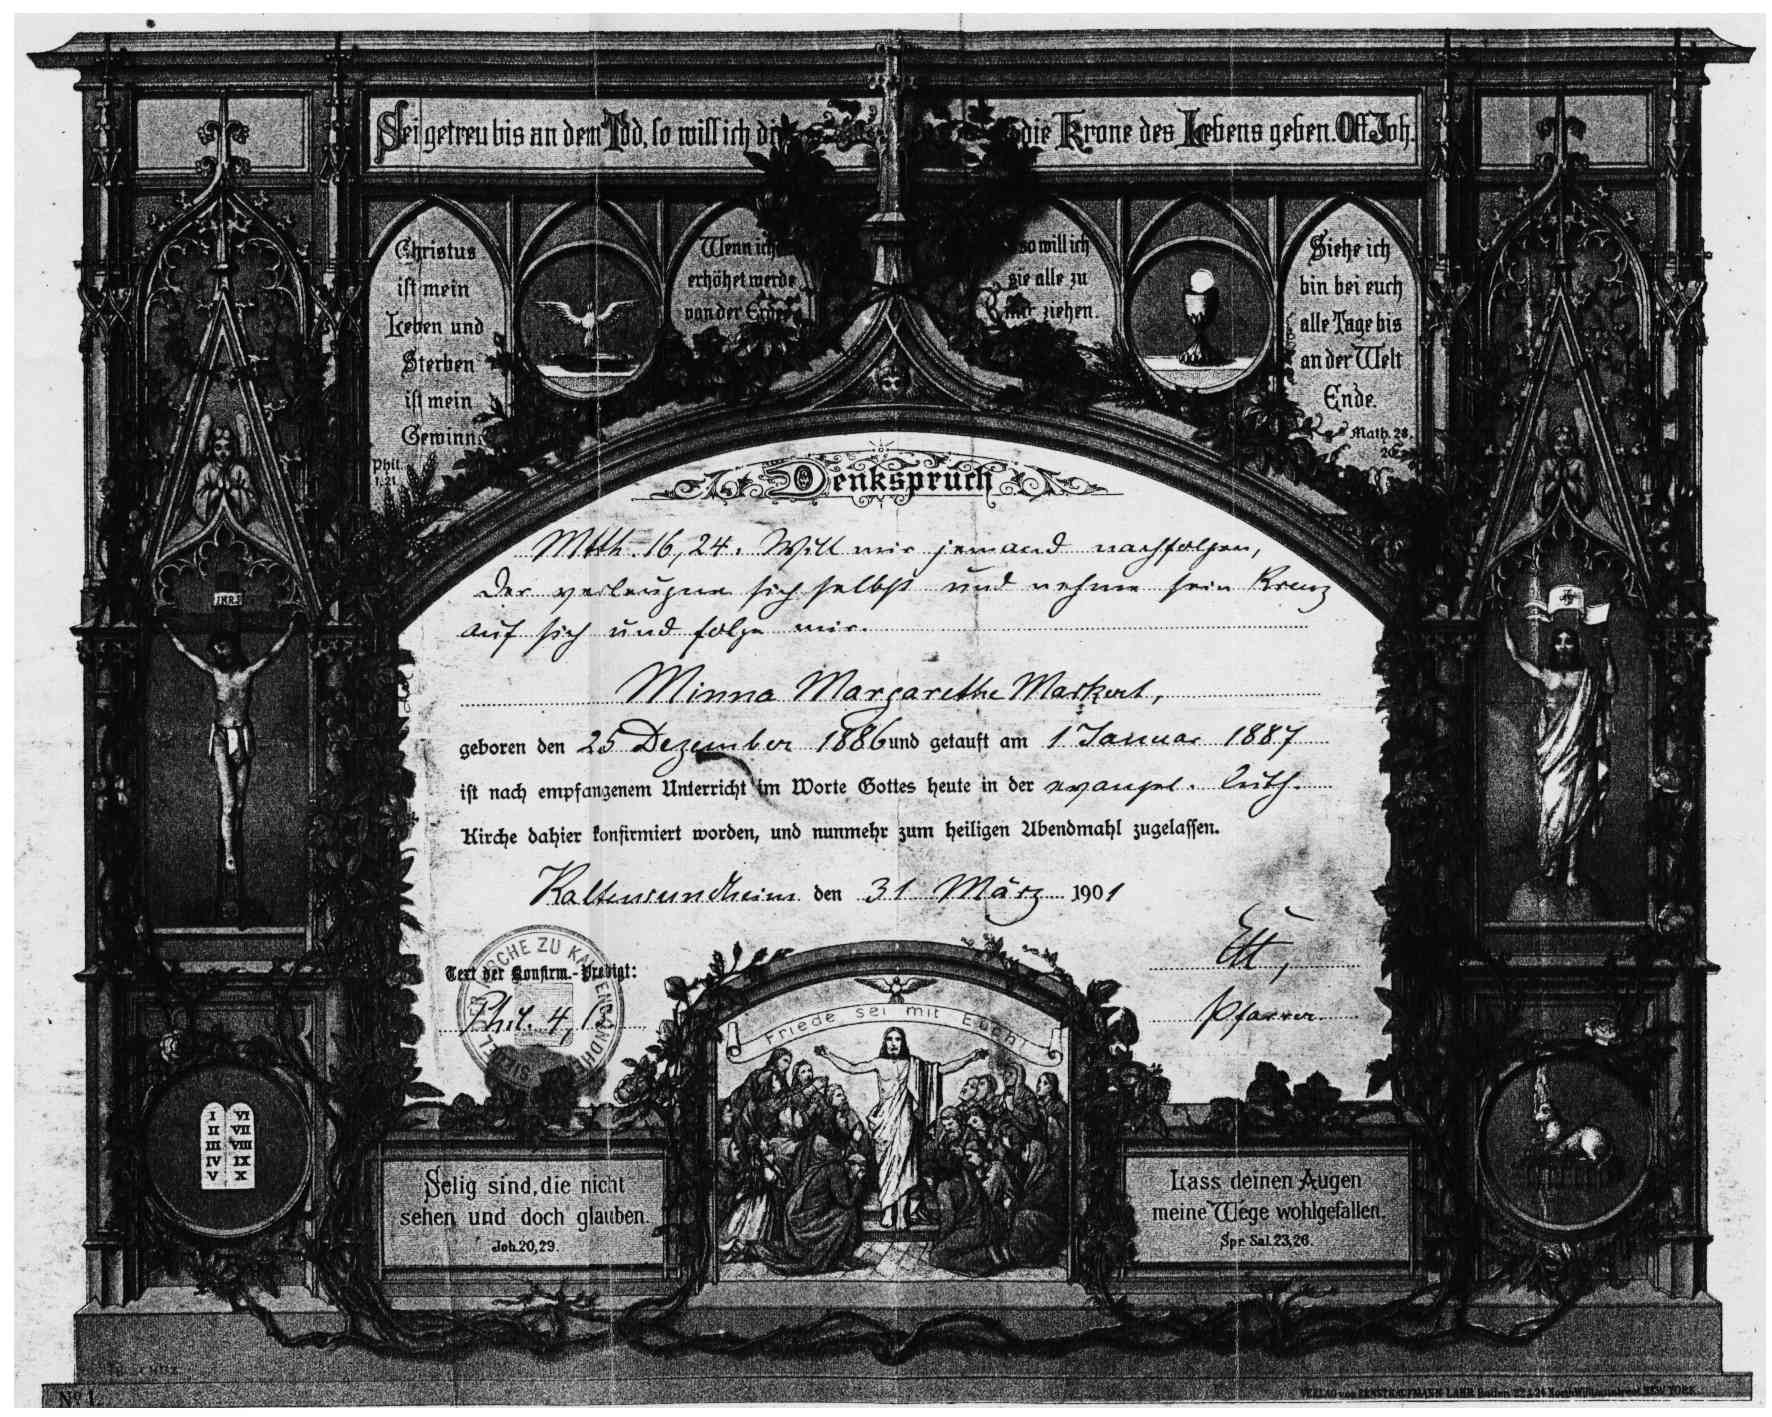 Sei getreu bis an dem Tod, so will ich dir die Krone des Lebens geben. Off. Joh.
Christus
ist mein
Leben und
Sterben
ist mein
Gewinn
Phil.
1,21.
Wenn ich
erhöhet werde
von der Erde
so will ich
sie alle zu
mir ziehen.
Siehe ich
bin bei euch
alle Tage bis
an der Welt
Ende.
Math. 28.
20.
Denkspruch
Mtth. 16, 24. Will mir jemand nachfolgen,
der verleugne sich selbst und nehme sein Kreuz
auf sich und folge mir.
Minna Margarethe Markert,
geboren den 25 Dezember 1886 und getauft am 1 Januar 1887
ist nach empfangenem Unterricht im Worte Gottes heute in der evangel. luth.
Kirche dahier konfirmiert worden, und nunmehr zum heiligen Abendmahl zugelassen.
Kaltensundheim den 31 März 1901
Text der Konfirm.-Predigt:
Phil. 4, 13
Ett,
Pfarrer.
SIEGEL DER KIRCHE ZU KALTENSUNDHEIM
INRI
Friede sei mit Euch!
I VI
II VII
III VIII
IV IX
V X
Selig sind, die nicht
sehen und doch glauben.
Joh. 20, 29.
Lass deinen Augen
meine Wege wohlgefallen.
Spr. Sal. 23, 26.
No. 1.
VERLAG von ERNST KAUFMANN LAHR Baden 22 & 24 North William street NEW YORK